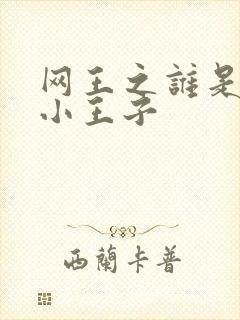 网王之誰是
小王子
西蘭卡普